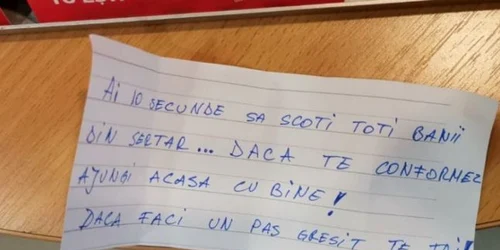 AI 10 SECUNDE SA SCOTI TOTI BANII
DIN SERTAR... DACA TE CONFORMEZ
AJUNGI ACASA CU BINE!
DACA FACI UN PAS GRESIT TE